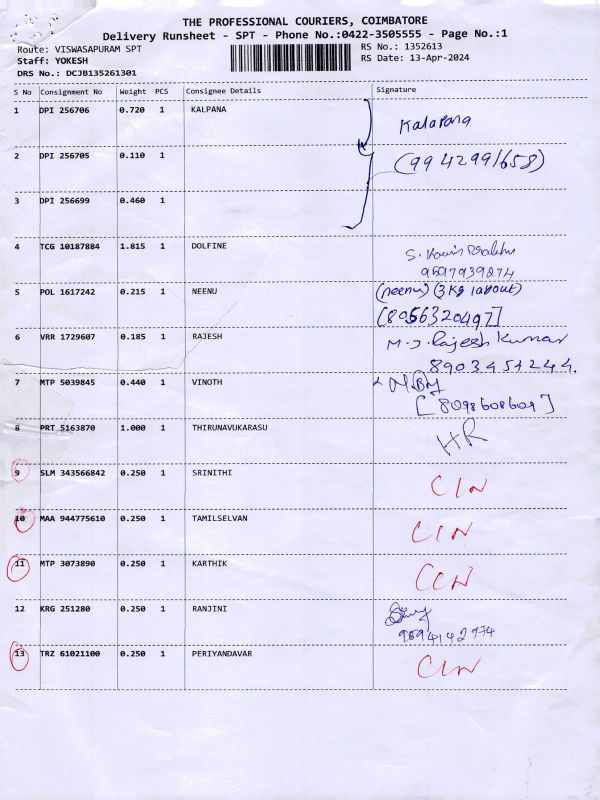 THE PROFESSIONAL COURIERS, COIMBATORE
Delivery Runsheet - SPT - Phone No.:0422-3505555 - Page No.:1
Route: VISWASAPURAM SPT
RS No.: 1352613
Staff: YOKESH
RS Date: 13-Apr-2024
DRS No.: DCJB135261301
S No Consignment No Weight PCS Consignee Details Signature
1 DPI 256706 0.720 1 KALPANA Kalapana
2 DPI 256705 0.110 1 (9942991658)
3 DPI 256699 0.460 1
4 TCG 10187884 1.815 1 DOLFINE S.
9597939874
5 POL 1617242 0.215 1 NEENU (neenu) (3kg
[8056320497]
6 VRR 1729607 0.185 1 RAJESH M.J. Rajesh Kumar
8903451244.
7 MTP 5039845 0.440 1 VINOTH
[8098608609]
8 PRT 5163870 1.000 1 THIRUNAVUKARASU HR
9 SLM 343566842 0.250 1 SRINITHI CIN
10 MAA 944775610 0.250 1 TAMILSELVAN CIN
11 MTP 3073890 0.250 1 KARTHIK CCN
12 KRG 251280 0.250 1 RANJINI
9694142774
13 TRZ 61021100 0.250 1 PERIYANDAVAR CIN